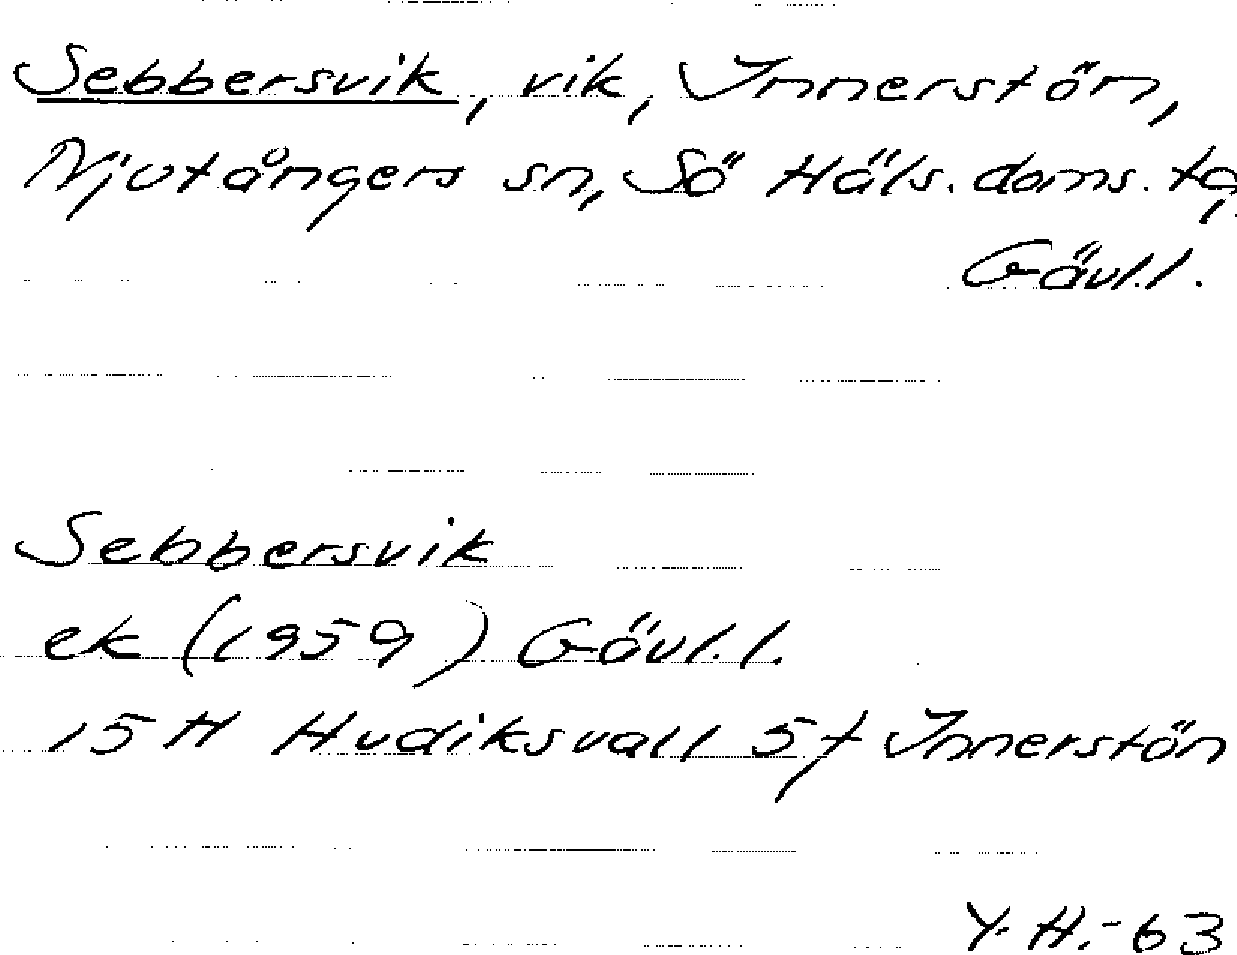 Sebbersvik, vik, Innerstön,
Njutångers sn, Sö Häls. doms. tg,
Gävl.l.
Sebbersvik
ek (1959) Gävl.l.
15 H Hudiksvall 5f Innerstön
Y.H.-63